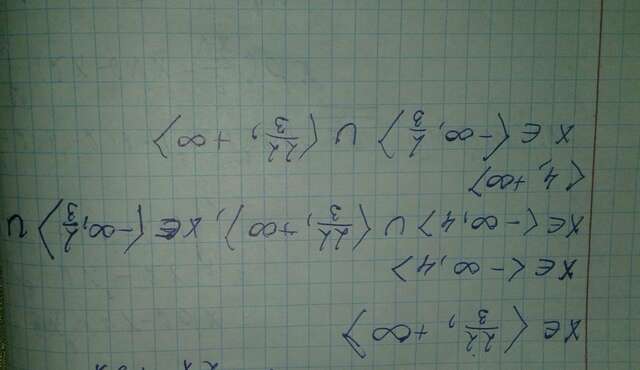 x ∈ <22/3, +∞>
x ∈ <-∞, 4>
x ∈ <-∞, 4> ∪ <22/3, +∞>, x ∈ <-∞, 2/3> ∪
<4, +∞>
x ∈ <-∞, 2/3> ∪ <22/3, +∞>